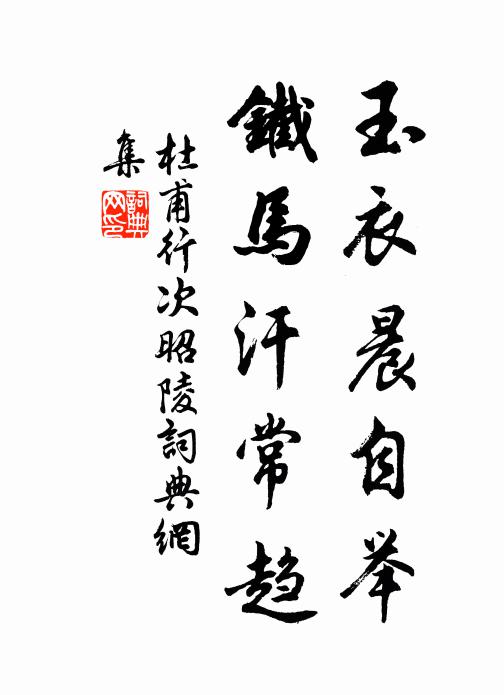 玉衣晨自举
鐵馬汗常趋
杜甫行次昭陵詞典網
集
詞典网印